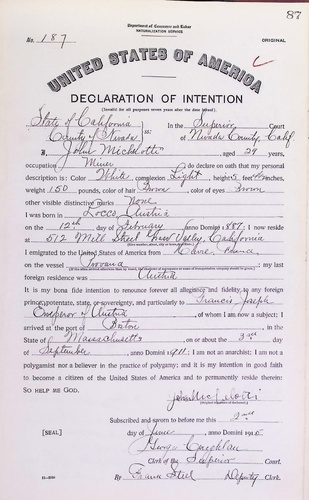 87
Department of Commerce and Labor
NATURALIZATION SERVICE
No. 187
ORIGINAL
UNITED STATES OF AMERICA
DECLARATION OF INTENTION
(Invalid for all purposes seven years after the date hereof)
State of California
County of Nevada
ss:
In the Superior Court
of Nevada County, Calif
I, John Michelotti, aged 28 years,
occupation Miner, do declare on oath that my personal
description is: Color White, complexion Light, height 5 feet inches,
weight 150 pounds, color of hair Brown, color of eyes Brown
other visible distinctive marks None
I was born in Austria
on the 12th day of February, anno Domini 1887; I now reside
at 512 Mill Street Grass Valley, California
I emigrated to the United States of America from
on the vessel ; my last
foreign residence was Austria
It is my bona fide intention to renounce forever all allegiance and fidelity to any foreign
prince, potentate, state, or sovereignty, and particularly to Francis Joseph
Emperor of Austria, of whom I am now a subject; I
arrived at the port of Boston, in the
State of Massachusetts on or about the 2nd day
of September, anno Domini 1911: I am not an anarchist; I am not a
polygamist nor a believer in the practice of polygamy; and it is my intention in good faith
to become a citizen of the United States of America and to permanently reside therein:
SO HELP ME GOD.
Subscribed and sworn to before me this 2nd
[SEAL]
day of June, anno Domini 1915
Clerk of the Superior Court.
By Steel Deputy Clerk.